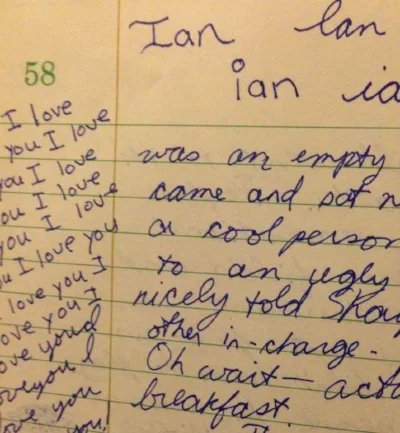 Ian Ian
58
ian
I love
you I love
you I love
you I love
you I love
you I love you
love you I
love you I
love you
love you I
love you
you!
was an empty
came and sat
a cool person
to an ugly
nicely told
other in-charge.
Oh wait —
breakfast.